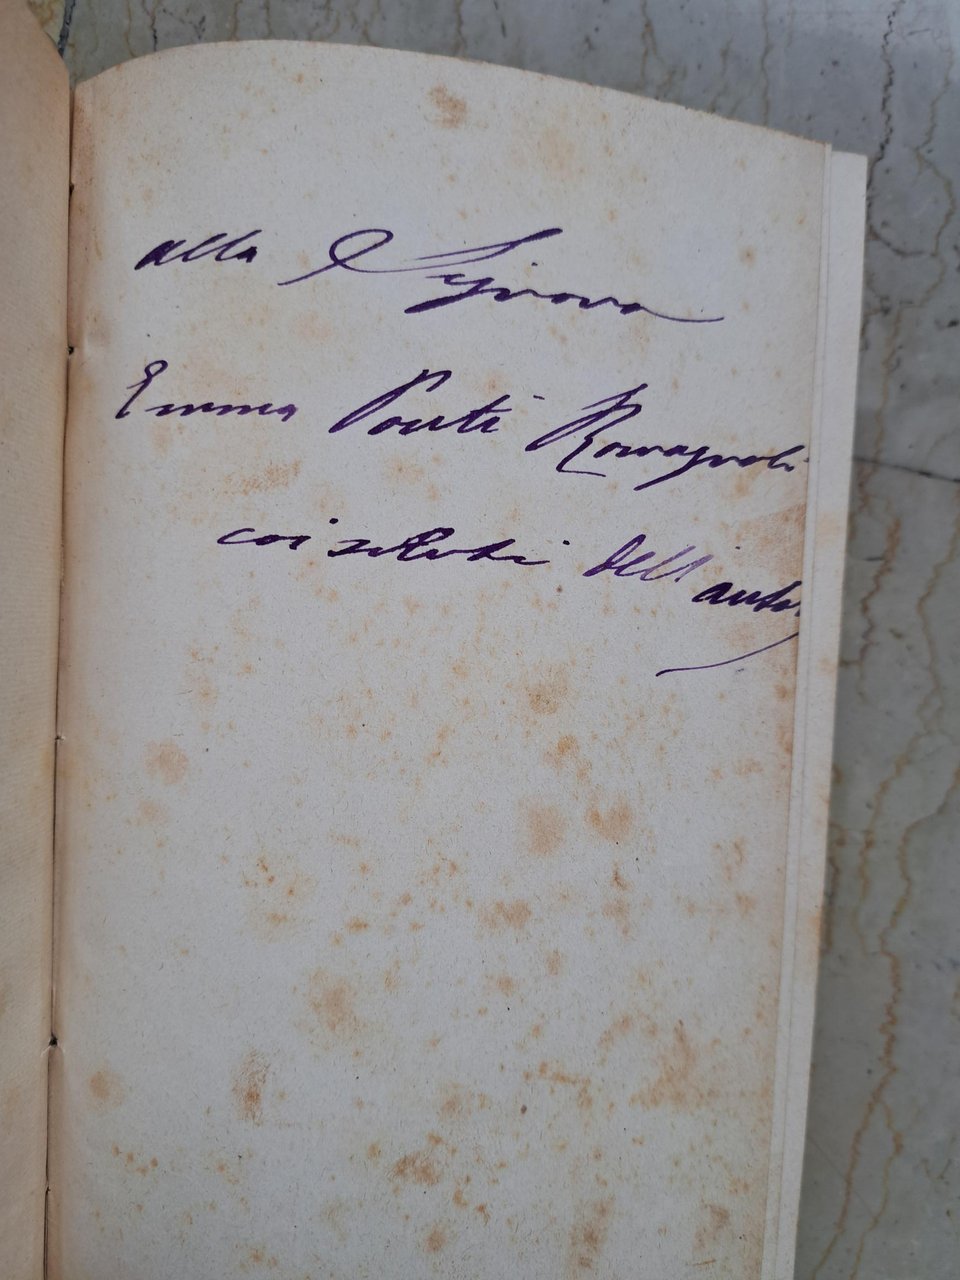 alla Signora
Emma Ponti Romagnoli
coi saluti dell'autor